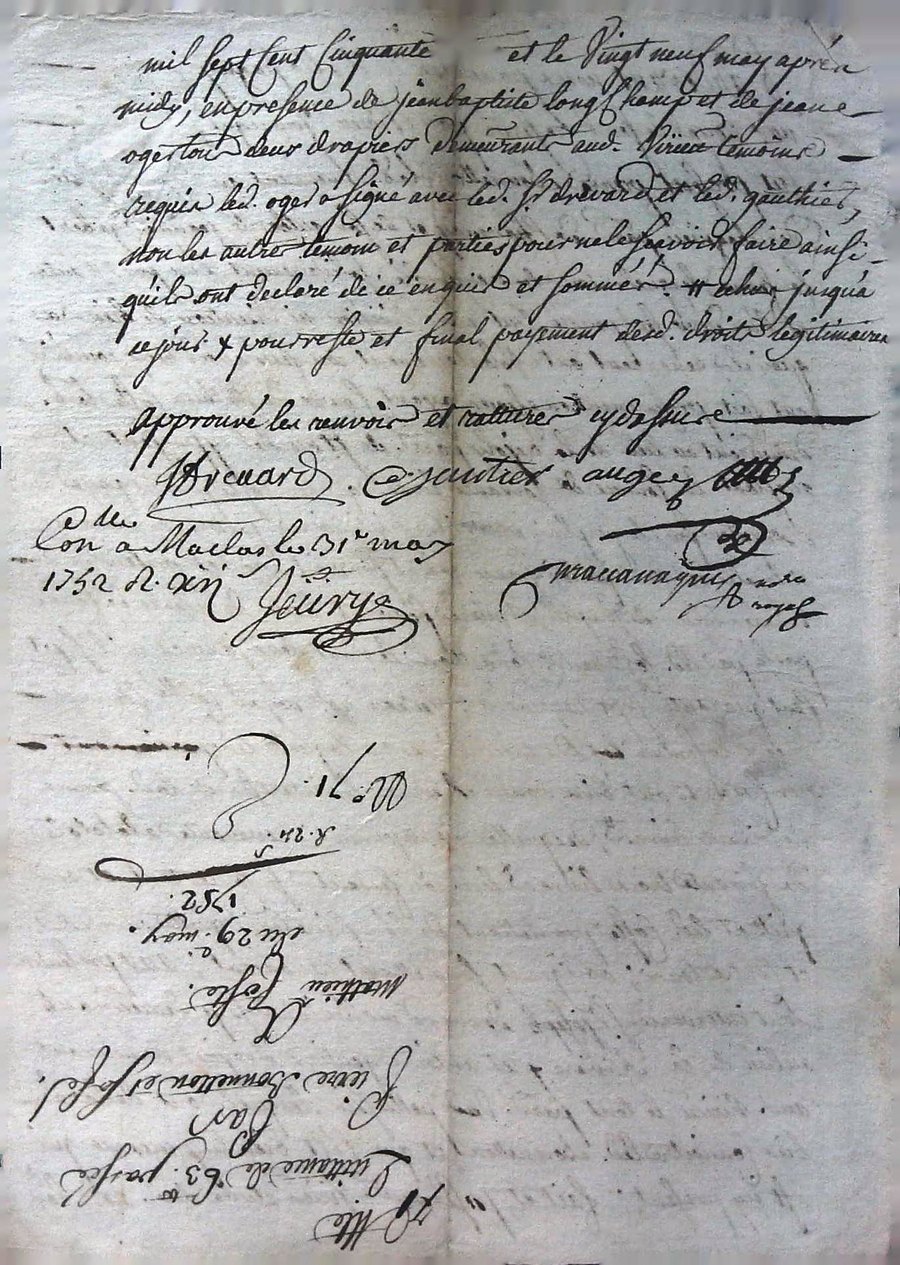 mil sept Cent Cinquante et le Vingt neuf may aprés
midy, en presence de jean baptiste longChamp et de jeane
oger tous deux drapiers demeurants aud. Virieu temoins
requis led. oger a signé avec led. Sr. drevard et led. gauthier,
non les autre temoin et parties pour ne le scavoir faire ainsi
qu'ils ont declaré de ce enquis et sommés. # echus jusqu'a
ce jour & pour reste et final payement desd. droits legitimaires
approuvé les renvois et ratures cy dessus
Drevard gautier auger
Con. a Maclas le 31e may
1752 R. xij s
Jeury
notre royal
No. 71.
R. 24 s
1752.
du 29e. may.
Mathieu Coste.
Pierre Bonnetton et Josep.
Par
Quittance de 63 tt passée